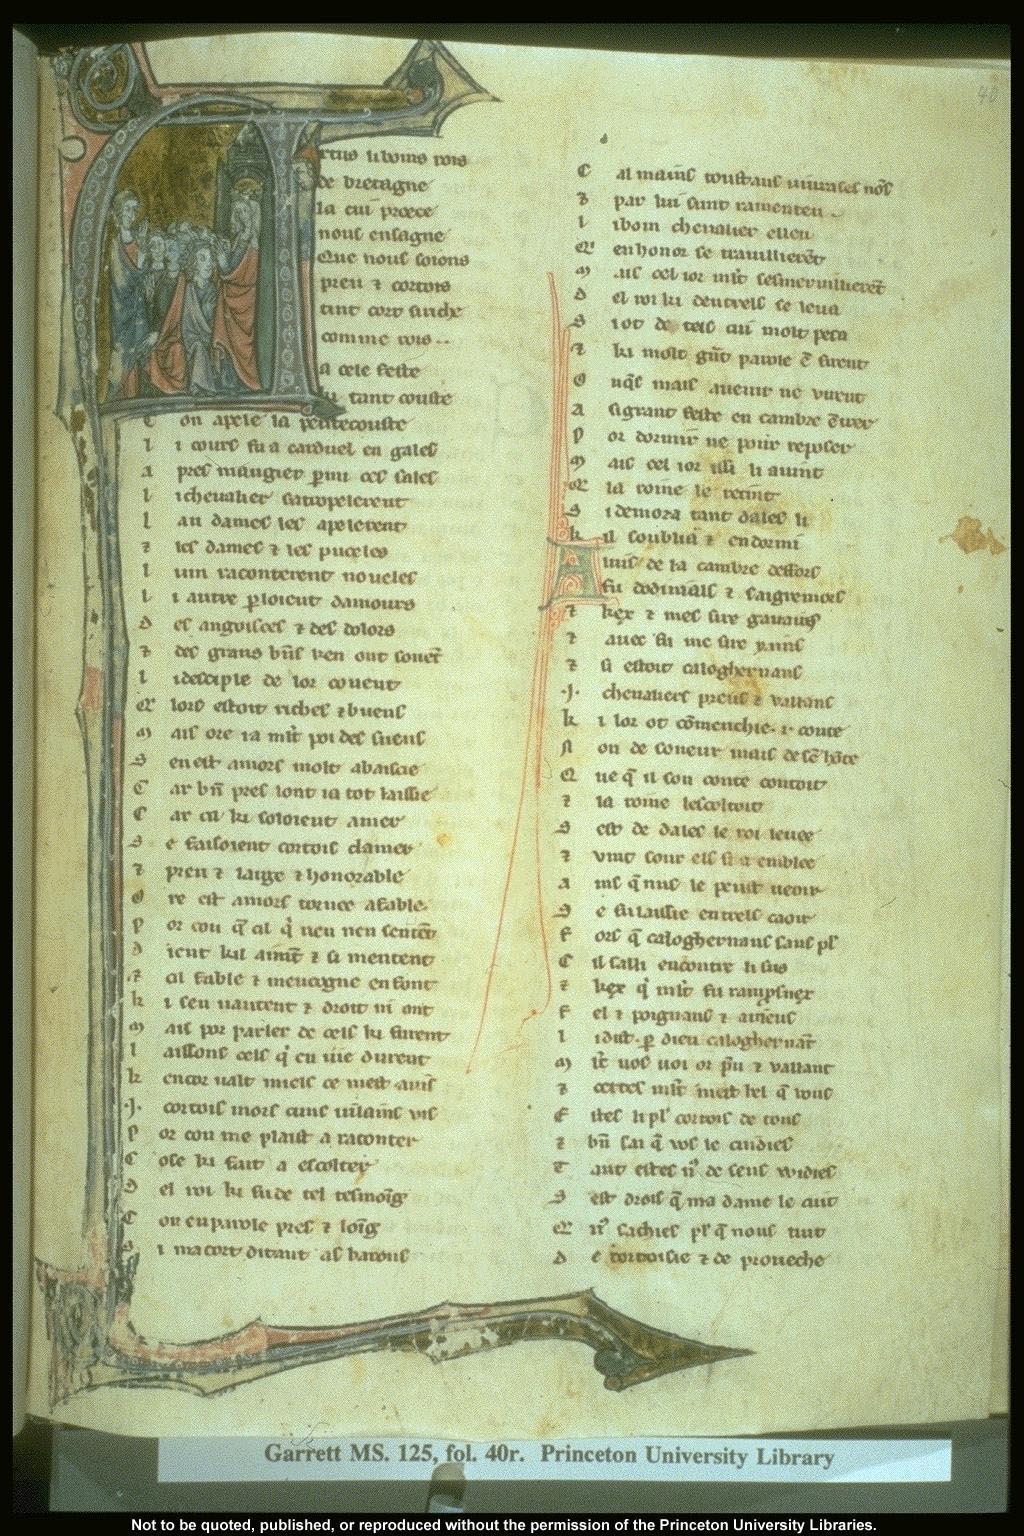 40
rtus li boins rois
de bretagne
la cui proece
nous ensagne
Que nous soions
preu ⁊ cortois
tint cort si riche
comme rois..
A cele feste
ki tant couste
C on apele la pentecouste
l i cours fu a carduel en gales
A pres mangier p̲mi ces sales
l i cheualier satropelerent
l au dames les apelerent
⁊ les dames ⁊ les puceles
l i un raconterent noueles
l i autre p̲loient damours
D es angoisces ⁊ des dolors
⁊ des grans bn̄s ken ont souēt
l i desciple de lor couent
Q̄ lors estoit riches ⁊ buens
M ais ore ia mlt̄ poi des suens
S en est amors molt abaiscie
C ar bn̄ pres lont ia tot laissie
C ar cil ki soloient amer
S e faisoient cortois clamer
⁊ preu ⁊ large ⁊ honorable
O re est amors tornee a fable
P or cou q̄ cil qi neu nen sentēt
D ient kil aimēt ⁊ si mentent
⁊ cil fable ⁊ mencogne en font
k i seu uantent ⁊ droit ni ont
M ais por parler de cels ki furent
l aissons cels qi en uie durent
k encor ualt miels ce mest auis
.I. cortois mors cuns uilains vis
P or cou me plaist a raconter
C ose ki fait a escolter
D el roi ki fu de tel tesmoig
C on en parole pres ⁊ loig
S i macort ditant as barons
C al mains
⁊ par lui sunt ramenteu
l i boin cheualier esleu
Q̄ en honor se trauillierēt
M ais cel ior mlt̄ sesmeruillierēt
D el roi ki dentrels se leua
S i ot de tels cui molt pesa
⁊ ki molt gn̄t parole ē firent
O nqes mais auenir ne virent
A si grant feste en cambre ētrer
P or dormir ne por reposer
M ais cel ior issi li auint
Q̄ la roine le retint
S i demora tant dales li
k il soublia ⁊ endormi
A luis de la cambre defors
fu dodiniaus ⁊ saigremors
⁊ kex ⁊ mes sire gauains
⁊ auec fu me sire yuains
⁊ si estoit caloghernans
.I. cheualiers preus ⁊ vallans
k i lor ot cōmenchie .i. conte
N on de soneur mais de sē hōte
Q ue q̄ il son conte contoit
⁊ la roine lescoltoit
S est de dales le roi leuee
⁊ vint sour els si a emblee
A ins q̄ nus le peust ueoir
S e fu laissie entrels caoir
F ors q̄ caloghernans sans pl9
C il salli encontre li sus
⁊ kex qi mlt̄ fu ramposnex
F el ⁊ poignans ⁊
l i dist. p̲ dieu caloghernāt
M lt̄ uos uoi or p̄u ⁊ vallant
⁊ certes mlt̄ mest bel q̄ vous
E stes li pl9 cortois de tous
⁊ bn̄ sai q̄ vos le cuidies
T ant estes n9 de sens widies
S est drois q̄ ma dame le cuit
Q̄ n9 sachies pl9 q̄ nous tuit
D e cortoisie ⁊ de proueche
Garrett MS. 125, fol. 40r. Princeton University Library
Not to be quoted, published, or reproduced without the permission of the Princeton University Libraries.